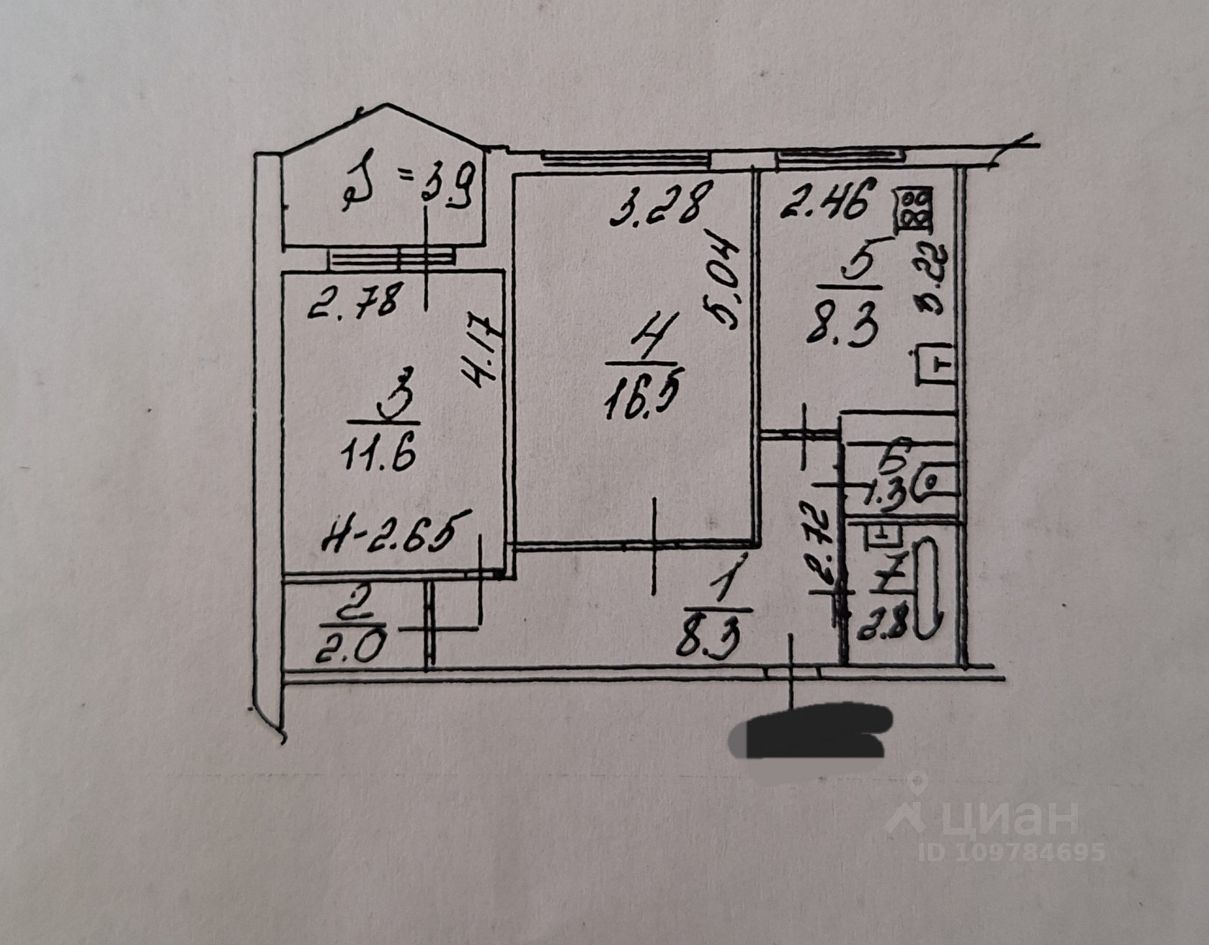 S = 3.9
3.28
2.46
5
8.3
3.22
5.04
2.78
4.17
4
16.5
3
11.6
H-2.65
6
1.3
2.72
7
2.8
1
8.3
2
2.0
циан
ID 109784695